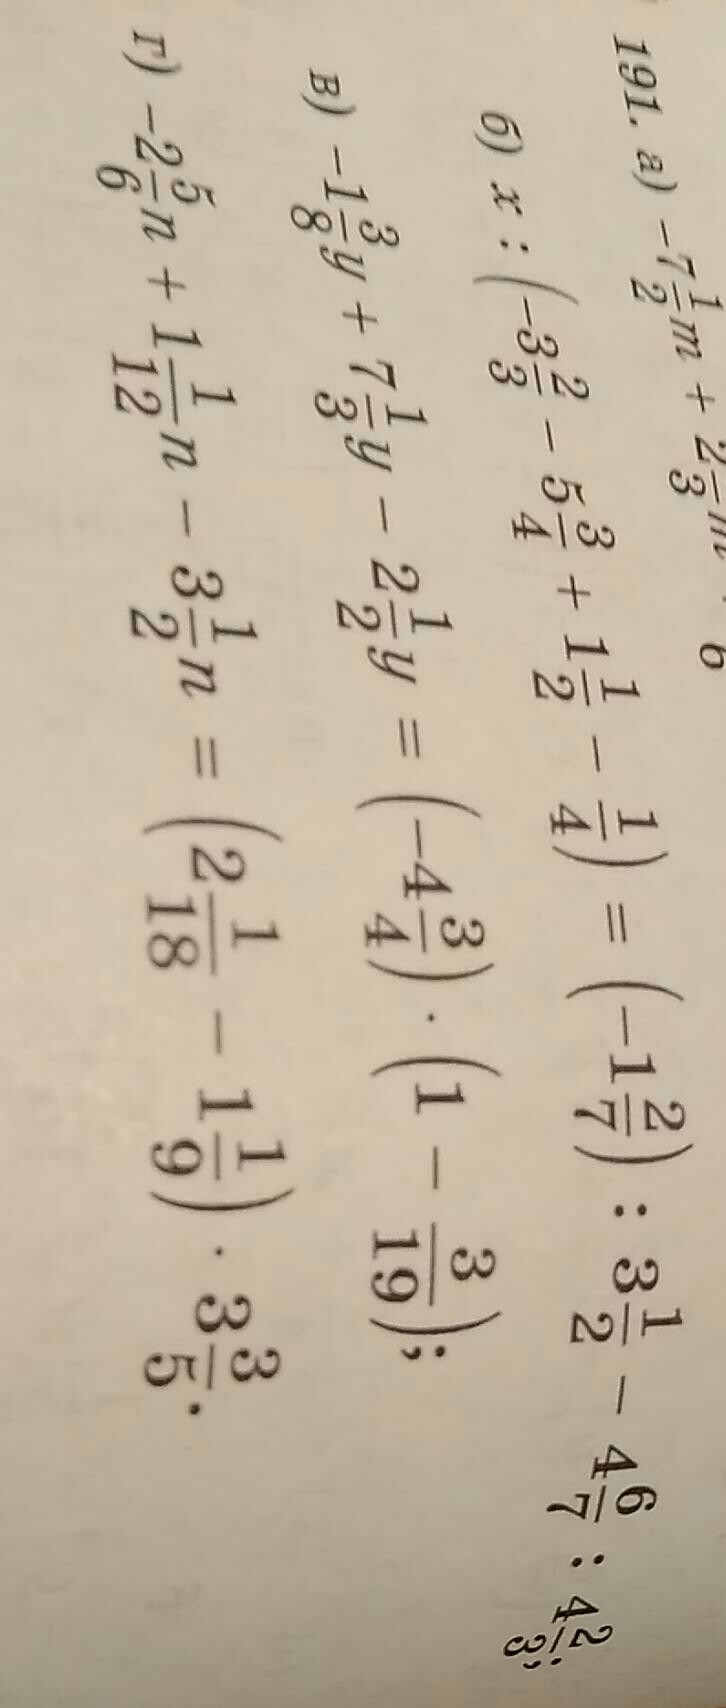 191. а) −7 1/2 m + 2 2/3 m
б) x : (−3 2/3 − 5 3/4 + 1 1/2 − 1/4) = (−1 2/7) : 3 1/2 − 4 6/7 : 4 2/3;
в) −1 3/8 y + 7 1/3 y − 2 1/2 y = (−4 3/4) · (1 − 3/19);
г) −2 5/6 n + 1 1/12 n − 3 1/2 n = (2 1/18 − 1 1/9) · 3 3/5.